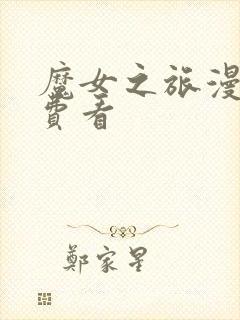 魔女之旅漫
费看
鄭家星